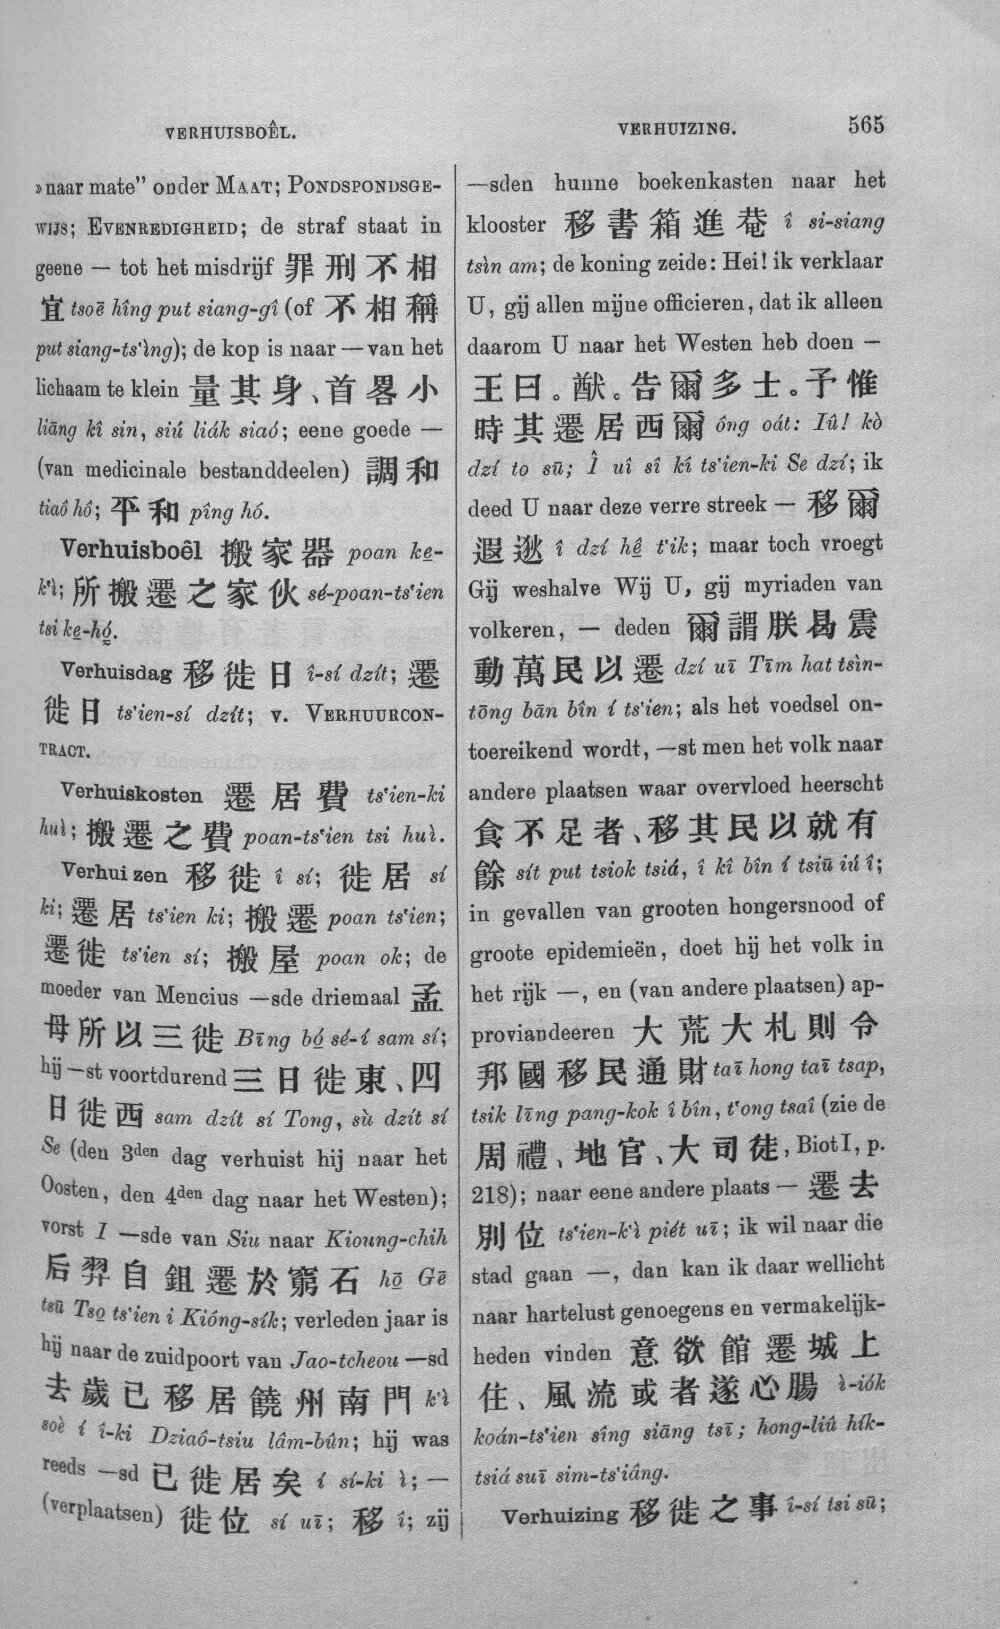 VERHUISBOÊL.
VERHUIZING.
565
»naar mate” onder MAAT; PONDSPONDSGE-
WIJS; EVENREDIGHEID; de straf staat in
geene — tot het misdrijf 罪刑不相
宜 tsoē hîng put siang-gî (of 不相稱
put siang-ts‘ìng); de kop is naar — van het
lichaam te klein 量其身、首畧小
liāng kî sin, siú liák siaó; eene goede —
(van medicinale bestanddeelen) 調和
tiaô hô; 平和 pîng hó.
Verhuisboêl 搬家器 poan ke̱-
k‘ì; 所搬遷之家伙 sé-poan-ts‘ien
tsi ke̱-hó̤.
Verhuisdag 移徙日 î-sí dzít; 遷
徙日 ts‘ien-sí dzít; v. VERHUURCON-
TRACT.
Verhuiskosten 遷居費 ts‘ien-ki
huì; 搬遷之費 poan-ts‘ien tsi huì.
Verhuizen 移徙 î sí; 徙居 sí
ki; 遷居 ts‘ien ki; 搬遷 poan ts‘ien;
遷徙 ts‘ien sí; 搬屋 poan ok; de
moeder van Mencius —sde driemaal 孟
母所以三徙 Bīng bó̱ sé-í sam sí;
hij —st voortdurend 三日徙東、四
日徙西 sam dzít sí Tong, sù dzít sí
Se (den 3den dag verhuist hij naar het
Oosten, den 4den dag naar het Westen);
vorst I —sde van Siu naar Kioung-chih
后羿自鉏遷於窮石 hō̱ Gē
tsū Tso̱ ts‘ien i Kióng-sík; verleden jaar is
hij naar de zuidpoort van Jao-tcheou —sd
去歲已移居饒州南門 k‘ì
soè í î-ki Dziaó-tsiu lâm-bûn; hij was
reeds —sd 已徙居矣 í sí-ki ì; —
(verplaatsen) 徙位 sí uī; 移 î; zij
—sden hunne boekenkasten naar het
klooster 移書箱進菴 î si-siang
tsìn am; de koning zeide: Hei! ik verklaar
U, gij allen mijne officieren, dat ik alleen
daarom U naar het Westen heb doen —
王曰。猷。告爾多士。予惟
時其遷居西爾 ông oát: Iû! kò
dzí to sū; Î uî sî kí ts‘ien-ki Se dzí; ik
deed U naar deze verre streek — 移爾
遐逖 î dzí hê̱ t‘ik; maar toch vroegt
Gij weshalve Wij U, gij myriaden van
volkeren, — deden 爾謂朕曷震
動萬民以遷 dzí uī Tīm hat tsìn-
tōng bān bîn í ts‘ien; als het voedsel on-
toereikend wordt, —st men het volk naar
andere plaatsen waar overvloed heerscht
食不足者、移其民以就有
餘 sít put tsiok tsiá, î kî bîn í tsiū iú î;
in gevallen van grooten hongersnood of
groote epidemieën, doet hij het volk in
het rijk —, en (van andere plaatsen) ap-
proviandeeren 大荒大札則令
邦國移民通財 taī hong taī tsap,
tsik līng pang-kok î bîn, t‘ong tsaî (zie de
周禮、地官、大司徒, Biot I, p.
218); naar eene andere plaats — 遷去
別位 ts‘ien-k‘ì piét uī; ik wil naar die
stad gaan —, dan kan ik daar wellicht
naar hartelust genoegens en vermakelijk-
heden vinden 意欲館遷城上
住、風流或者遂心腸 ì-iók
koán-ts‘ien sîng siāng tsī; hong-liû hík-
tsiá suī sim-ts‘iâng.
Verhuizing 移徙之事 î-sí tsi sū;